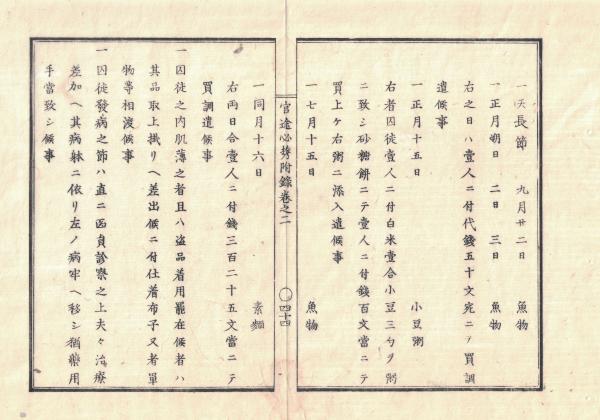 一天長節　九月廿二日　魚物
一正月朔日　二日　三日　魚物
右之日ハ壹人ニ付代錢五十文宛ニテ買調
遣候事
一正月十五日　小豆粥
右者囚徒壹人ニ付白米壹合小豆三勺ヲ粥
ニ致シ砂糖餅ニテ壹人ニ付錢百文當ニテ
買上ケ右粥ニ添入遣候事
一七月十五日　魚物
官途必携附錄卷之二　〇四十四
一同月十六日　素麵
右両日合壹人ニ付錢三百二十五文當ニテ
買調遣候事
一囚徒之内肌薄之者且ハ盗品着用罷在候者ハ
其品取上掛リヘ差出候ニ付仕着布子又者單
物等相渡候事
一囚徒發病之節ハ直ニ醫員診察之上夫々治療
差加ヘ其病躰ニ依リ左ノ病牢ヘ移シ猶藥用
手當致シ候事